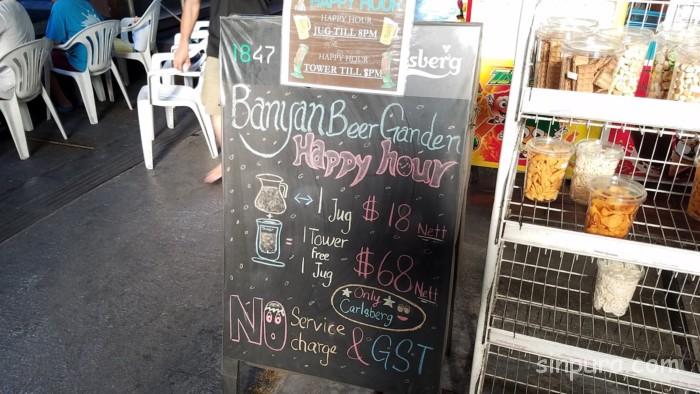 HAPPY HOUR
HAPPY HOUR
JUG TILL 8PM
HAPPY HOUR
TOWER TILL $PM
1847
Carlsberg
Banyan Beer Garden
Happy hour
1 Jug $18 Nett
= 1 Tower
free
1 Jug
$68 Nett
Only
Carlsberg
NO Service
charge & GST
sinpuro.com